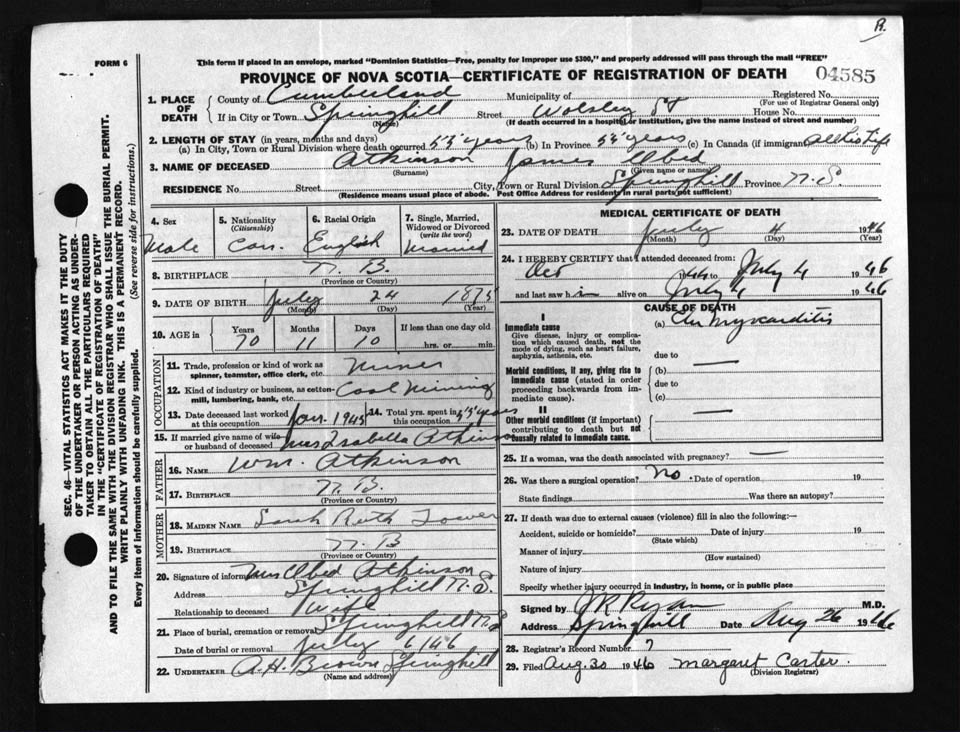 R.
FORM 6
This form if placed in an envelope, marked "Dominion Statistics—Free, penalty for improper use $300," and properly addressed will pass through the mail "FREE"
PROVINCE OF NOVA SCOTIA—CERTIFICATE OF REGISTRATION OF DEATH 04585
1. PLACE OF DEATH County of Cumberland Municipality of Registered No. (For use of Registrar General only)
If in City or Town Springhill (Name) Street Wolsley St House No.
(If death occurred in a hospital or institution, give the name instead of street and number)
2. LENGTH OF STAY (in years, months and days)
(a) In City, Town or Rural Division where death occurred 55 years (b) In Province 55 years (c) In Canada (if immigrant) all his life
3. NAME OF DECEASED Atkinson James Obed
(Surname) (Given name or names)
RESIDENCE No. Street City, Town or Rural Division Springhill Province N.S.
(Residence means usual place of abode. Post Office Address for residents in rural parts not sufficient)
4. Sex Male
5. Nationality (Citizenship) Can.
6. Racial Origin English
7. Single, Married, Widowed or Divorced (write the word) Married
8. BIRTHPLACE N. B.
(Province or Country)
9. DATE OF BIRTH July 24 1875
(Month) (Day) (Year)
10. AGE in Years Months Days If less than one day old
70 11 10 hrs. or min.
OCCUPATION
11. Trade, profession or kind of work as spinner, teamster, office clerk, etc. Miner
12. Kind of industry or business, as cotton-mill, lumbering, bank, etc. Coal Mining
13. Date deceased last worked at this occupation Jan. 1945
14. Total yrs. spent in this occupation 55 years
15. If married give name of wife or husband of deceased Mrs Isabella Atkinson
FATHER
16. NAME Wm. Atkinson
17. BIRTHPLACE N. B.
(Province or Country)
MOTHER
18. MAIDEN NAME Sarah Ruth Tower
19. BIRTHPLACE N. B
(Province or Country)
20. Signature of informant Mrs Obed Atkinson
Address Springhill N. S.
Relationship to deceased Wife
21. Place of burial, cremation or removal Springhill N.S
Date of burial or removal July 6/46
22. UNDERTAKER A. H. Brown Springhill
(Name and address)
MEDICAL CERTIFICATE OF DEATH
23. DATE OF DEATH July 4 1946
(Month) (Day) (Year)
24. I HEREBY CERTIFY that I attended deceased from:
Oct 1944 July 4 1946
and last saw h i alive on July 4 1946
CAUSE OF DEATH
I
Immediate cause
Give disease, injury or complication which caused death, not the mode of dying, such as heart failure, asphyxia, asthenia, etc.
(a) Chr Myocarditis
due to
Morbid conditions, if any, giving rise to immediate cause (stated in order proceeding backwards from immediate cause).
(b)
due to
(c)
II
Other morbid conditions (if important) contributing to death but not causally related to immediate cause.
25. If a woman, was the death associated with pregnancy?
26. Was there a surgical operation? No. Date of operation 19
State findings Was there an autopsy?
27. If death was due to external causes (violence) fill in also the following:—
Accident, suicide or homicide? Date of injury 19
(State which)
Manner of injury
(How sustained)
Nature of injury
Specify whether injury occurred in industry, in home, or in public place
Signed by J R Ryan M.D.
Address Springhill Date Aug 26 1946
28. Registrar's Record Number 7
29. Filed Aug. 30 1946 Margaret Carter.
(Division Registrar)
SEC. 46—VITAL STATISTICS ACT MAKES IT THE DUTY
OF THE UNDERTAKER OR PERSON ACTING AS UNDER-
TAKER TO OBTAIN ALL THE PARTICULARS REQUIRED
IN THE "CERTIFICATE OF REGISTRATION OF DEATH"
AND TO FILE THE SAME WITH THE DIVISION REGISTRAR WHO SHALL ISSUE THE BURIAL PERMIT.
WRITE PLAINLY WITH UNFADING INK. THIS IS A PERMANENT RECORD.
Every item of information should be carefully supplied. (See reverse side for instructions.)